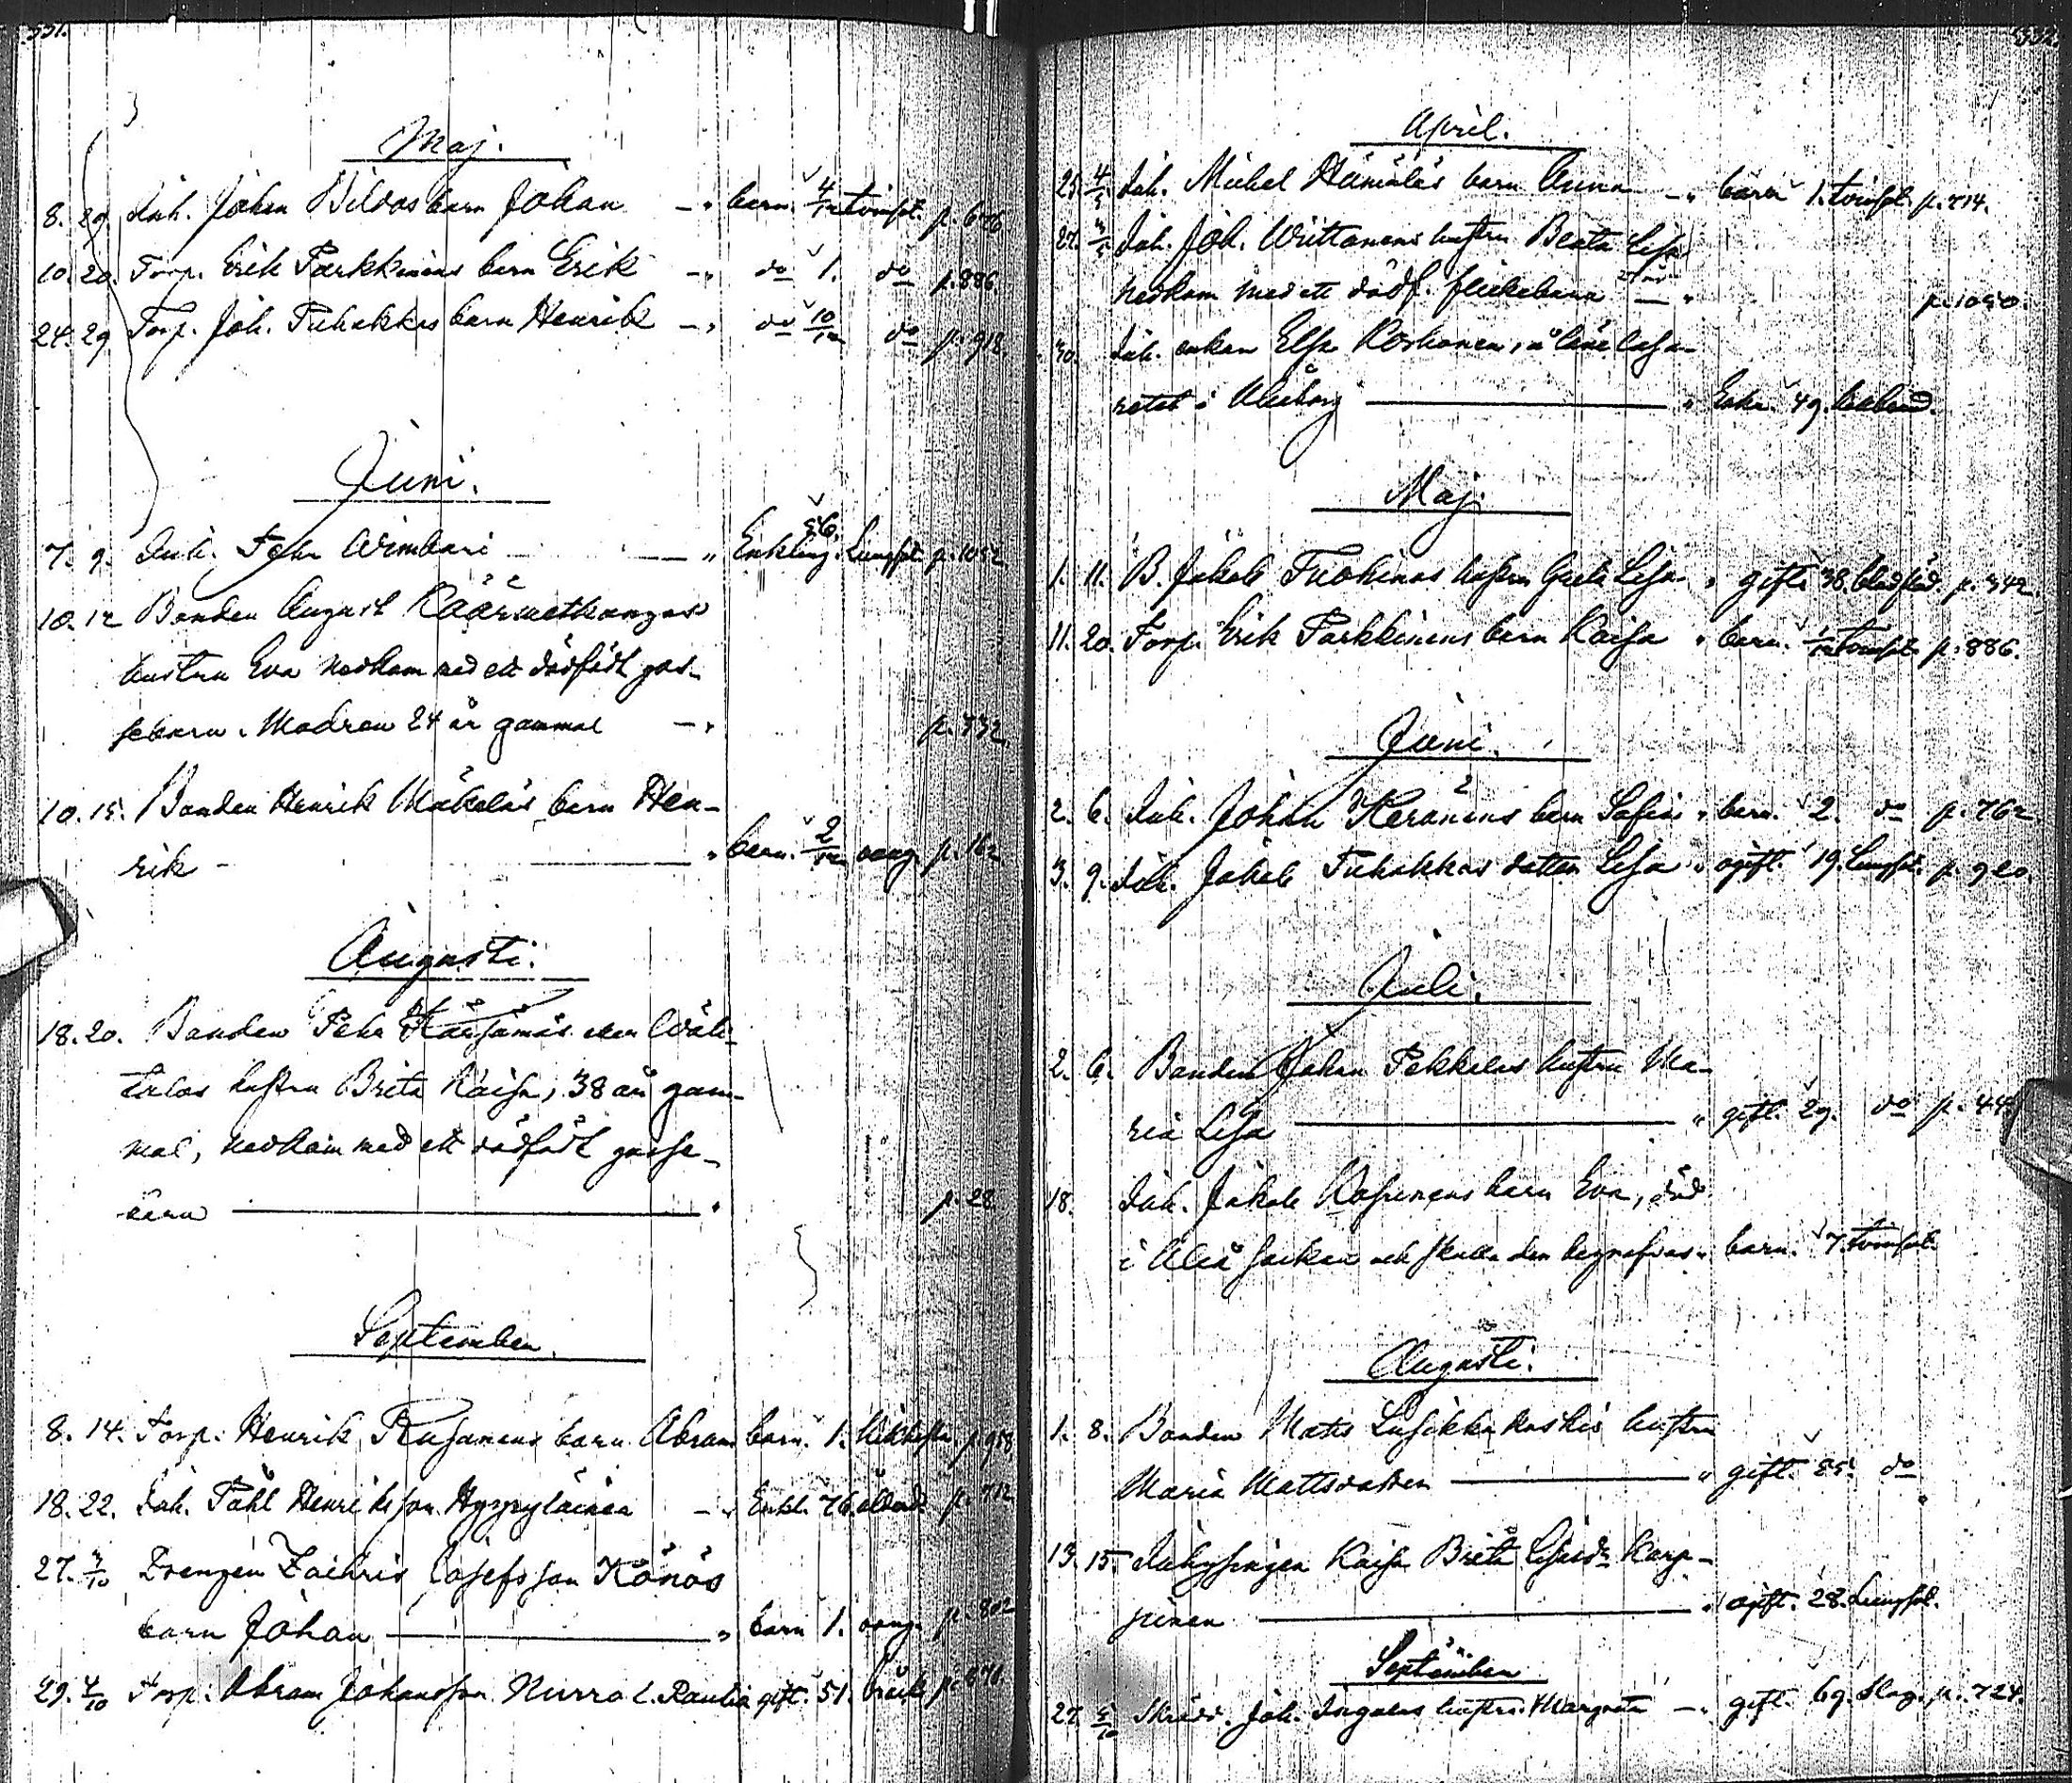 331.
Maj.
8. 29. Inh. Johan Wildos barn Johan — " barn. 4/12 tvinsot. p. 676
10. 20. Torp. Erik Parkkinens barn Erik — " do 1. do p. 886.
24. 29 Torp. Joh. Tuhakkas barn Henrik — " do 10/12 do p. 918
Juni.
7. 9. Inh. Pehr Wimbari — " Enkling. 56. Lungsot p. 1052
10. 12 Bonden August Käärmetkangas
hustru Eva nedkom med ett dödfödt gos-
sebarn. Modren 24 år gammal — " p. 332.
10. 15. Bonden Henrik Mäkeläs barn Hen-
rik — " barn. 2/12 oang. p. 162
Augusti.
18. 20. Bonden Pehr Kärsämäs eller Wäli-
talos hustru Brita Kaisa, 38 år gam-
mal, nedkom med ett dödfödt gosse-
barn — " p. 28
September.
8. 14. Torp. Henrik Rusanens barn Abram barn. 1. kikhosta p. 958
18. 22. Inh. Påhl Henriksson Hyppyläinen — " Enkl. 76. ålderd. p. 712
27. 4/10 Drengen Zachris Josefsson Könös
barn Johan — " barn 1. oang. p. 802
29. 4/10 Torp. Abram Johansson Nurro l. Rautia gift. 51. bråck p. 671.
April.
25. 4/5 Inh. Michel Hämäläs barn Anna — " barn 1. tvinsot. p. 714.
27. 4/5 Inh. Joh. Wiittanens hustru Beata Lisa
nedkom med ett dödf. flickebarn — " p. 1050.
30. Inh. enkan Elsa Koskonen, å läne lasa-
rettet i Uleåborg — " Enka. 49.
Maj.
1. 11. B. Jakob Tuohinos hustru Greta Lisa " gift 38. blodsot. p. 342
11. 20. Torp. Erik Parkkinens barn Kaisa " barn. 1/12 tvinsot. p. 886.
Juni.
2. 6. Inh. Johan Keränens barn Sofia " barn. 2. do p. 762
3. 9. Inh. Jakob Tuhakkas dotter Lisa " ogift. 19. Lungsot. p. 920.
Juli.
2. 6. Bonden Johan Pekkalas hustru Ma-
ria Lisa — " gift. 29. do p. 44.
18. Inh. Jakob Kosunens barn Eva, död
i Uleå socken och skall der begrafvas " barn. 7. tvinsot.
Augusti.
1. 8. Bonden Matts Lusikka koskis hustru
Maria Mattsdotter — " gift. 55. do
13. 15. Inhyssingen Kaisa Brita Lisasdr Karp-
pinen — " ogift. 28. Lungsot.
September
27. 4/10 Skrädd. Joh. Ingalas hustru Margreta — " gift. 69. Slag. p. 724.